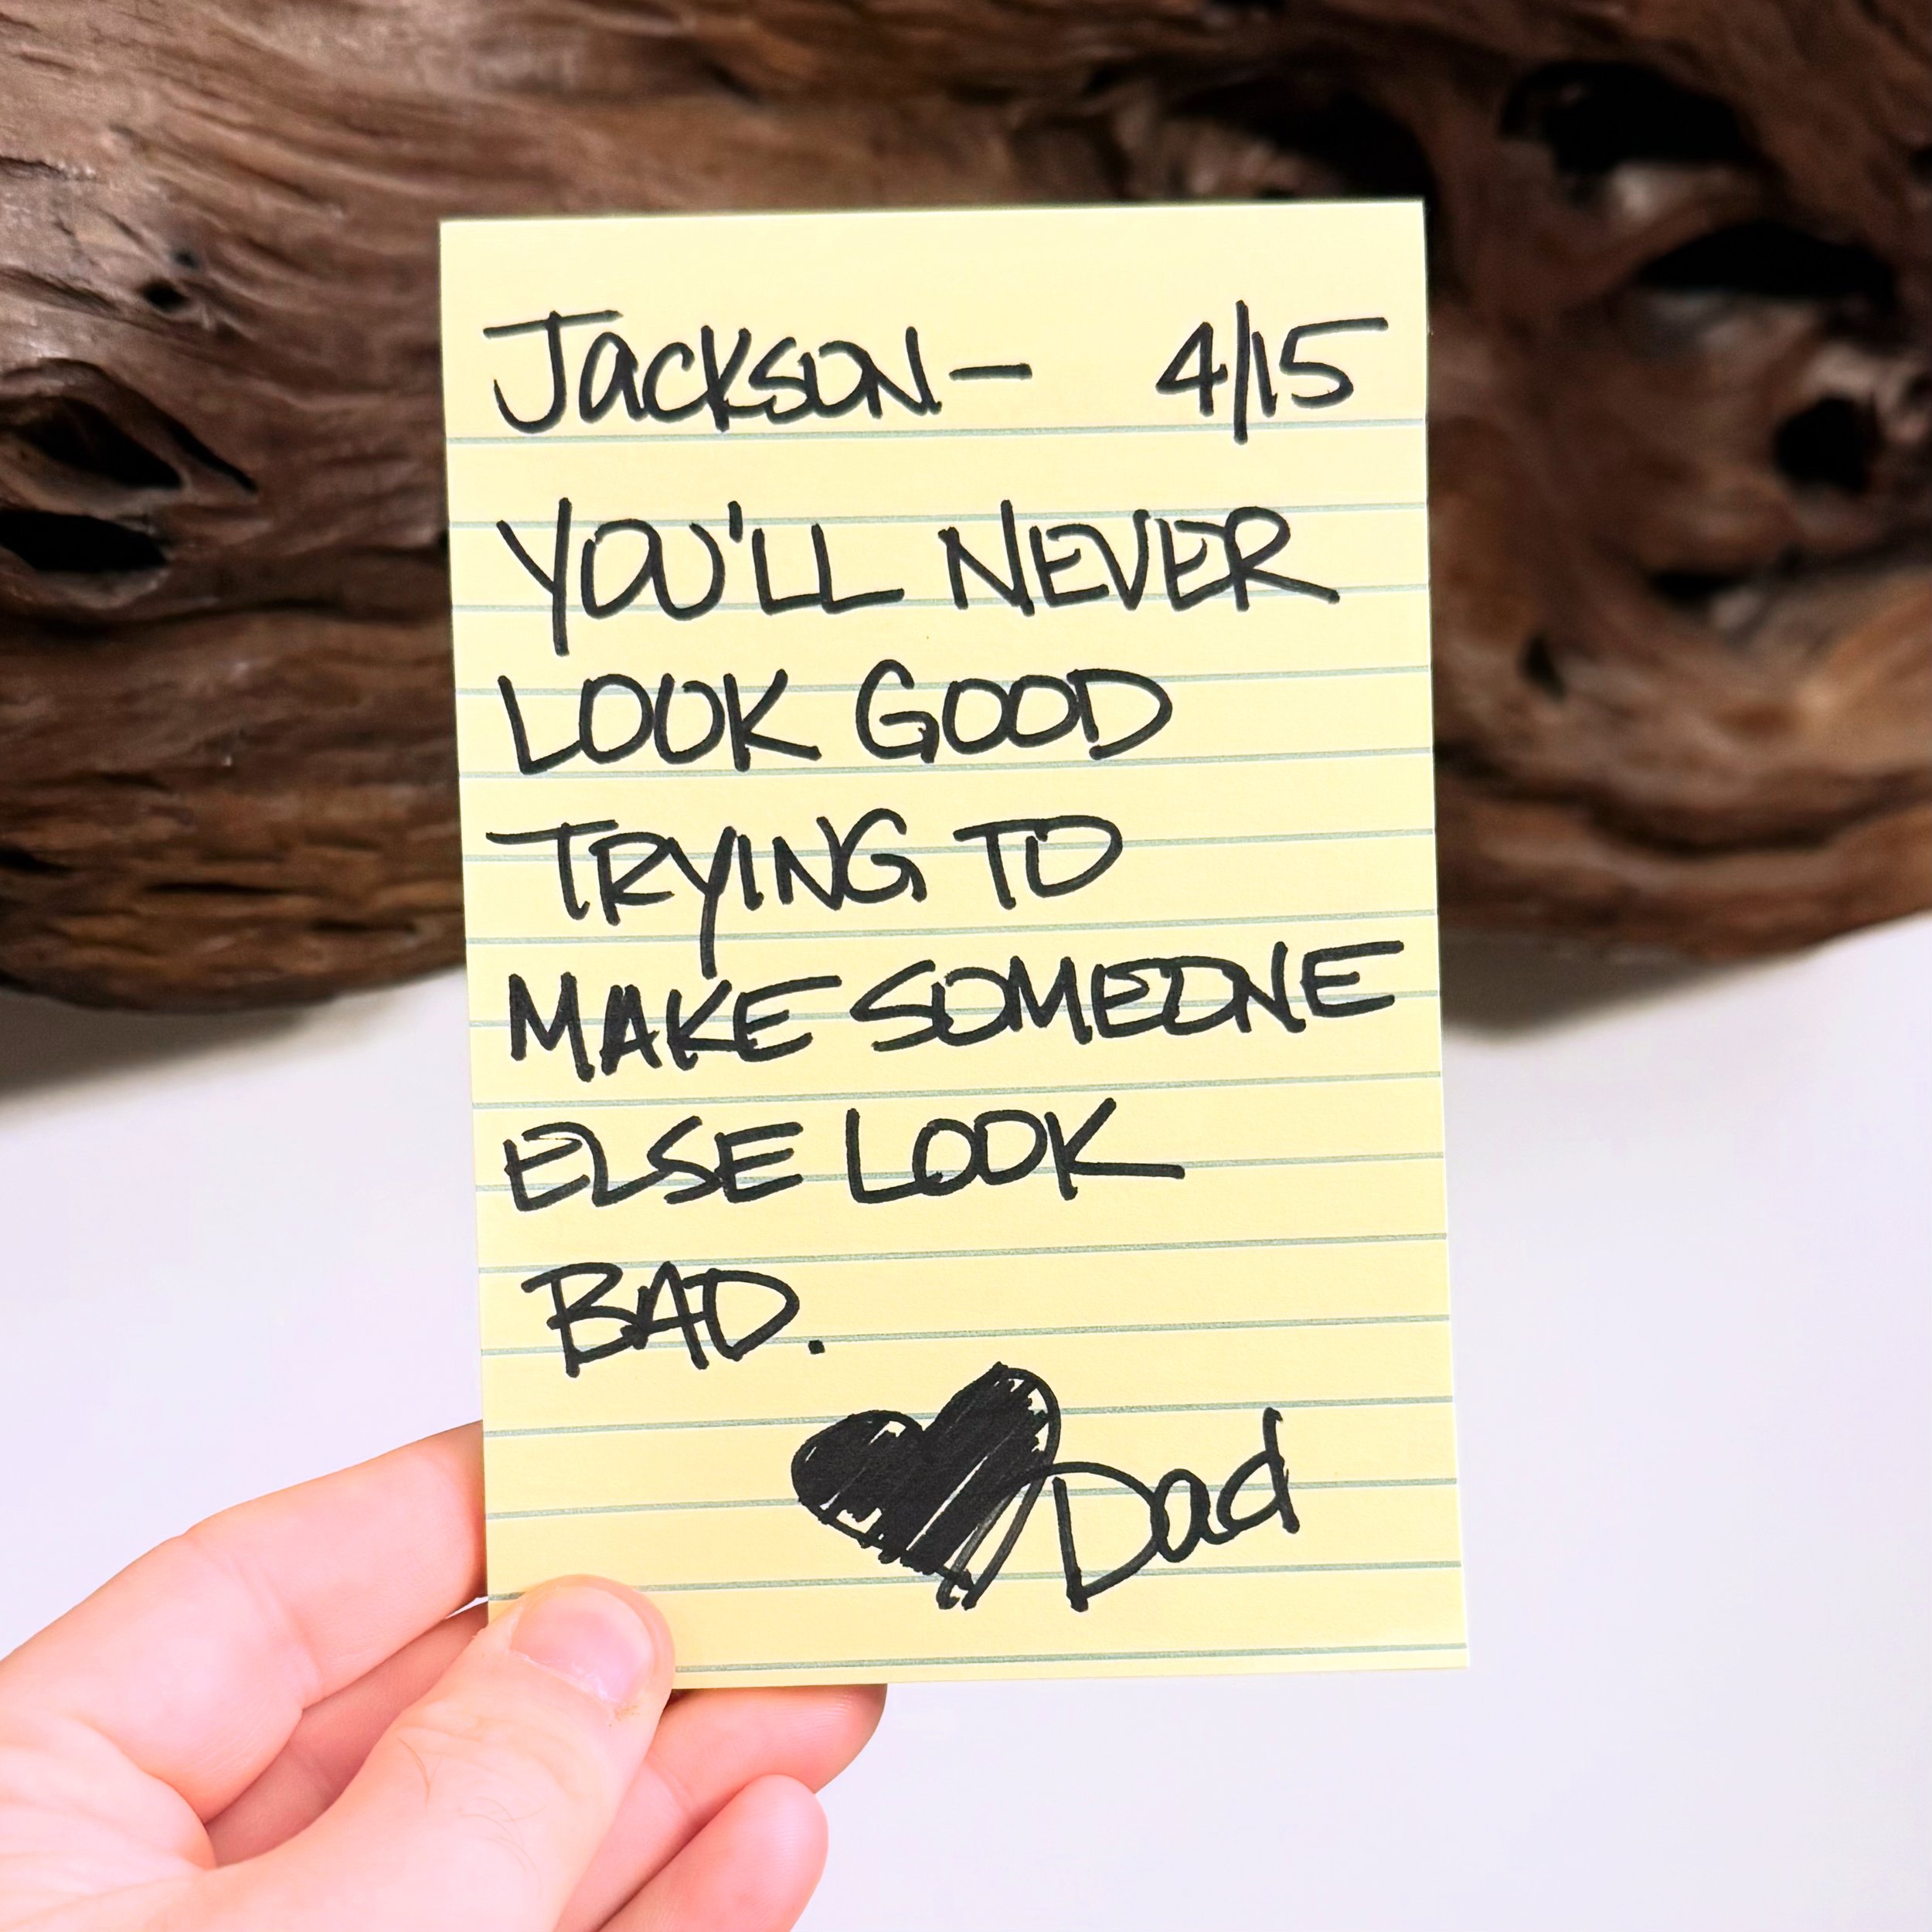 Jackson— 4/15
YOU'LL NEVER
LOOK GOOD
TRYING TO
MAKE SOMEONE
ELSE LOOK
BAD.
Dad